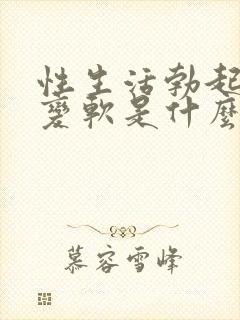 性生活勃起
变軟是什麼
慕容雪峰